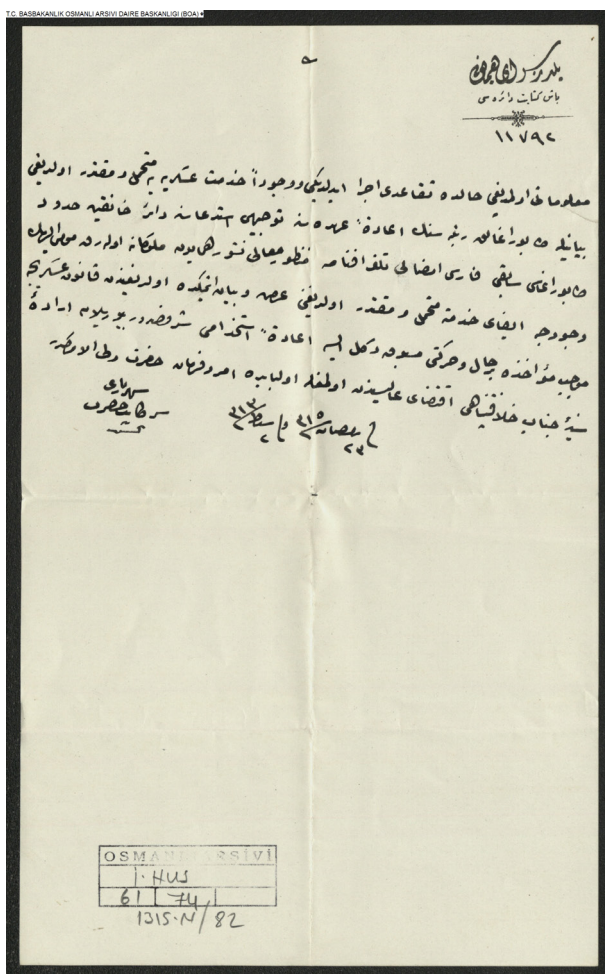 T.C. BASBAKANLIK OSMANLI ARSIVI DAIRE BASKANLIGI (BOA)
یلدیز سرای همایونی
باش کتابت دائره سی
١١٧٩٢
معلوماتی اولدیغی حالده تقاعدی اجرا ایدلدیکی ووجوداً خدمت عسکریه یه متحمل و مقتدر اولدیغی
بیانیله طابور اغالق رتبه سنك اعادةً عهده سنه توجیهی استدعاسنه دائر خانقین حدود
طابور اغاسی سابقی فارس امضالی تلغرافنامه منظور معالی نشور همایون ملوکانه اوله رق مومی الیهك
وجودجه ایفای خدمته متحمل و مقتدر اولدیغی عرض و بیان ایتمکده اولدیغندن قانون عسکریجه
موجب مؤاخذه بر حال و حرکتی مسبوق دکل ایسه اعادةً استخدامی شرفصدور بیوریلان اراده
سنیۀ جناب خلافتپناهی اقتضای عالیسندن اولمغله اولبابده امر و فرمان حضرت ولی الامرکدر
فی ٢٣ رمضان ٣١٥ و فی ٢ شباط ٣١٣
سرکاتب حضرت
شهریاری
OSMANLI ARŞİVİ
İ.HUS
61 74
1315.N/82